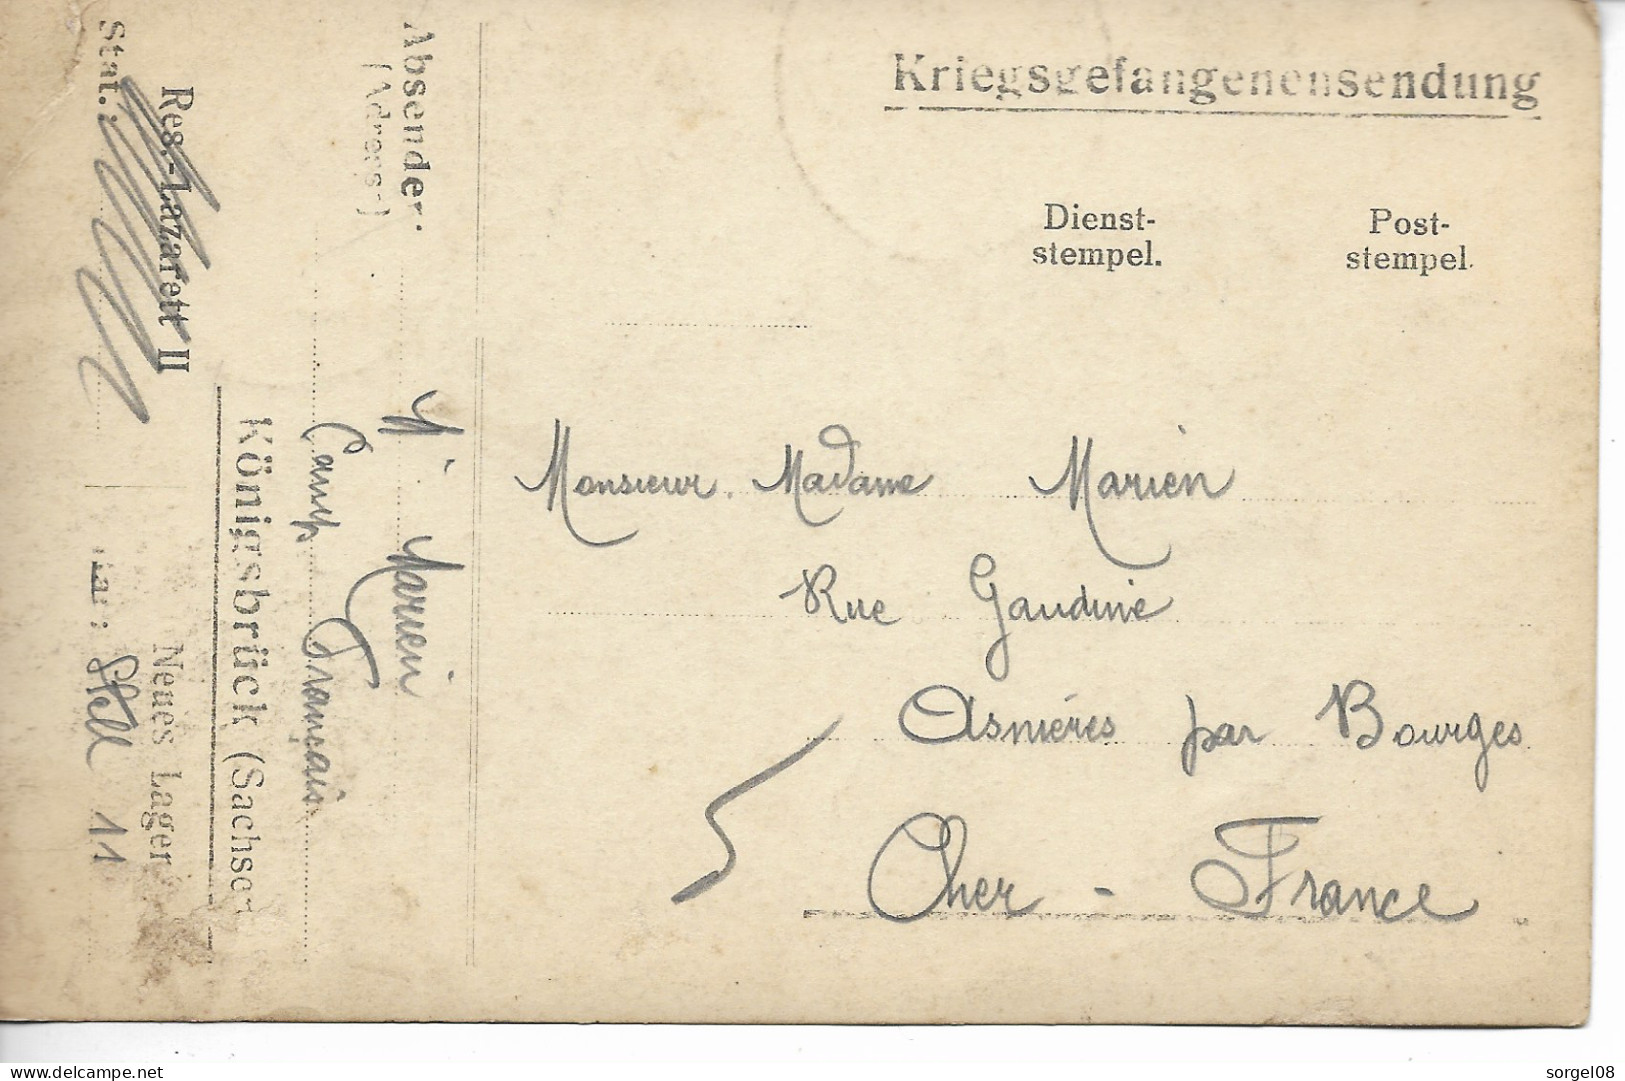 Kriegsgefangenensendung
Dienst-
stempel.
Post-
stempel.
Monsieur. Madame Marien
Rue Gaudine
Asnières par Bourges
Cher - France
Absender:
(Adresse)
Marien
Camp Français
Königsbrück (Sachsen
Res.-Lazarett II
Neues Lager
Stat.:
11
www.delcampe.net
sorgel08